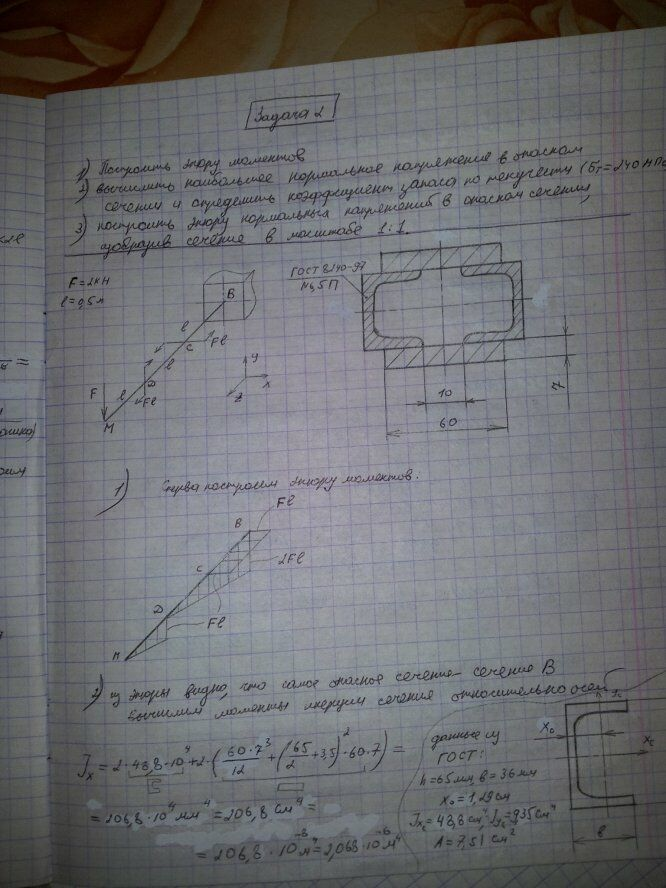 Задача 2
1) Построить эпюру моментов
2) вычислить наибольшее нормальное напряжение в опасном
сечении и определить коэффициент запаса по текучести (σт=240 МПа
3) построить эпюру нормальных напряжений в опасном сечении,
изобразив сечение в масштабе 1:1.
F=2кН
l=0,5м
B
l
C
Fl
l
D
Fl
l
F
M
y
x
z
ГОСТ 8240-97
№6,5П
10
60
7
1) Сперва построим эпюру моментов:
B
Fl
C
2Fl
D
Fl
M
2) из эпюры видно, что самое опасное сечение - сечение B
Вычислим моменты инерции сечения относительно осей
Jx = 2·48,8·10⁴+2·(60·7³/12 + (65/2 + 3,5)²·60·7) =
= 206,8·10⁴ мм⁴ = 206,8 см⁴ =
= 206,8·10⁻⁸ м⁴ = 2,068·10⁻⁶ м⁴
данные из
ГОСТ:
h=65мм, b=36мм
x₀=1,29см
Jxc=48,8см⁴, Jyc=9,35см⁴
A=7,51см²
x₀
xc
b